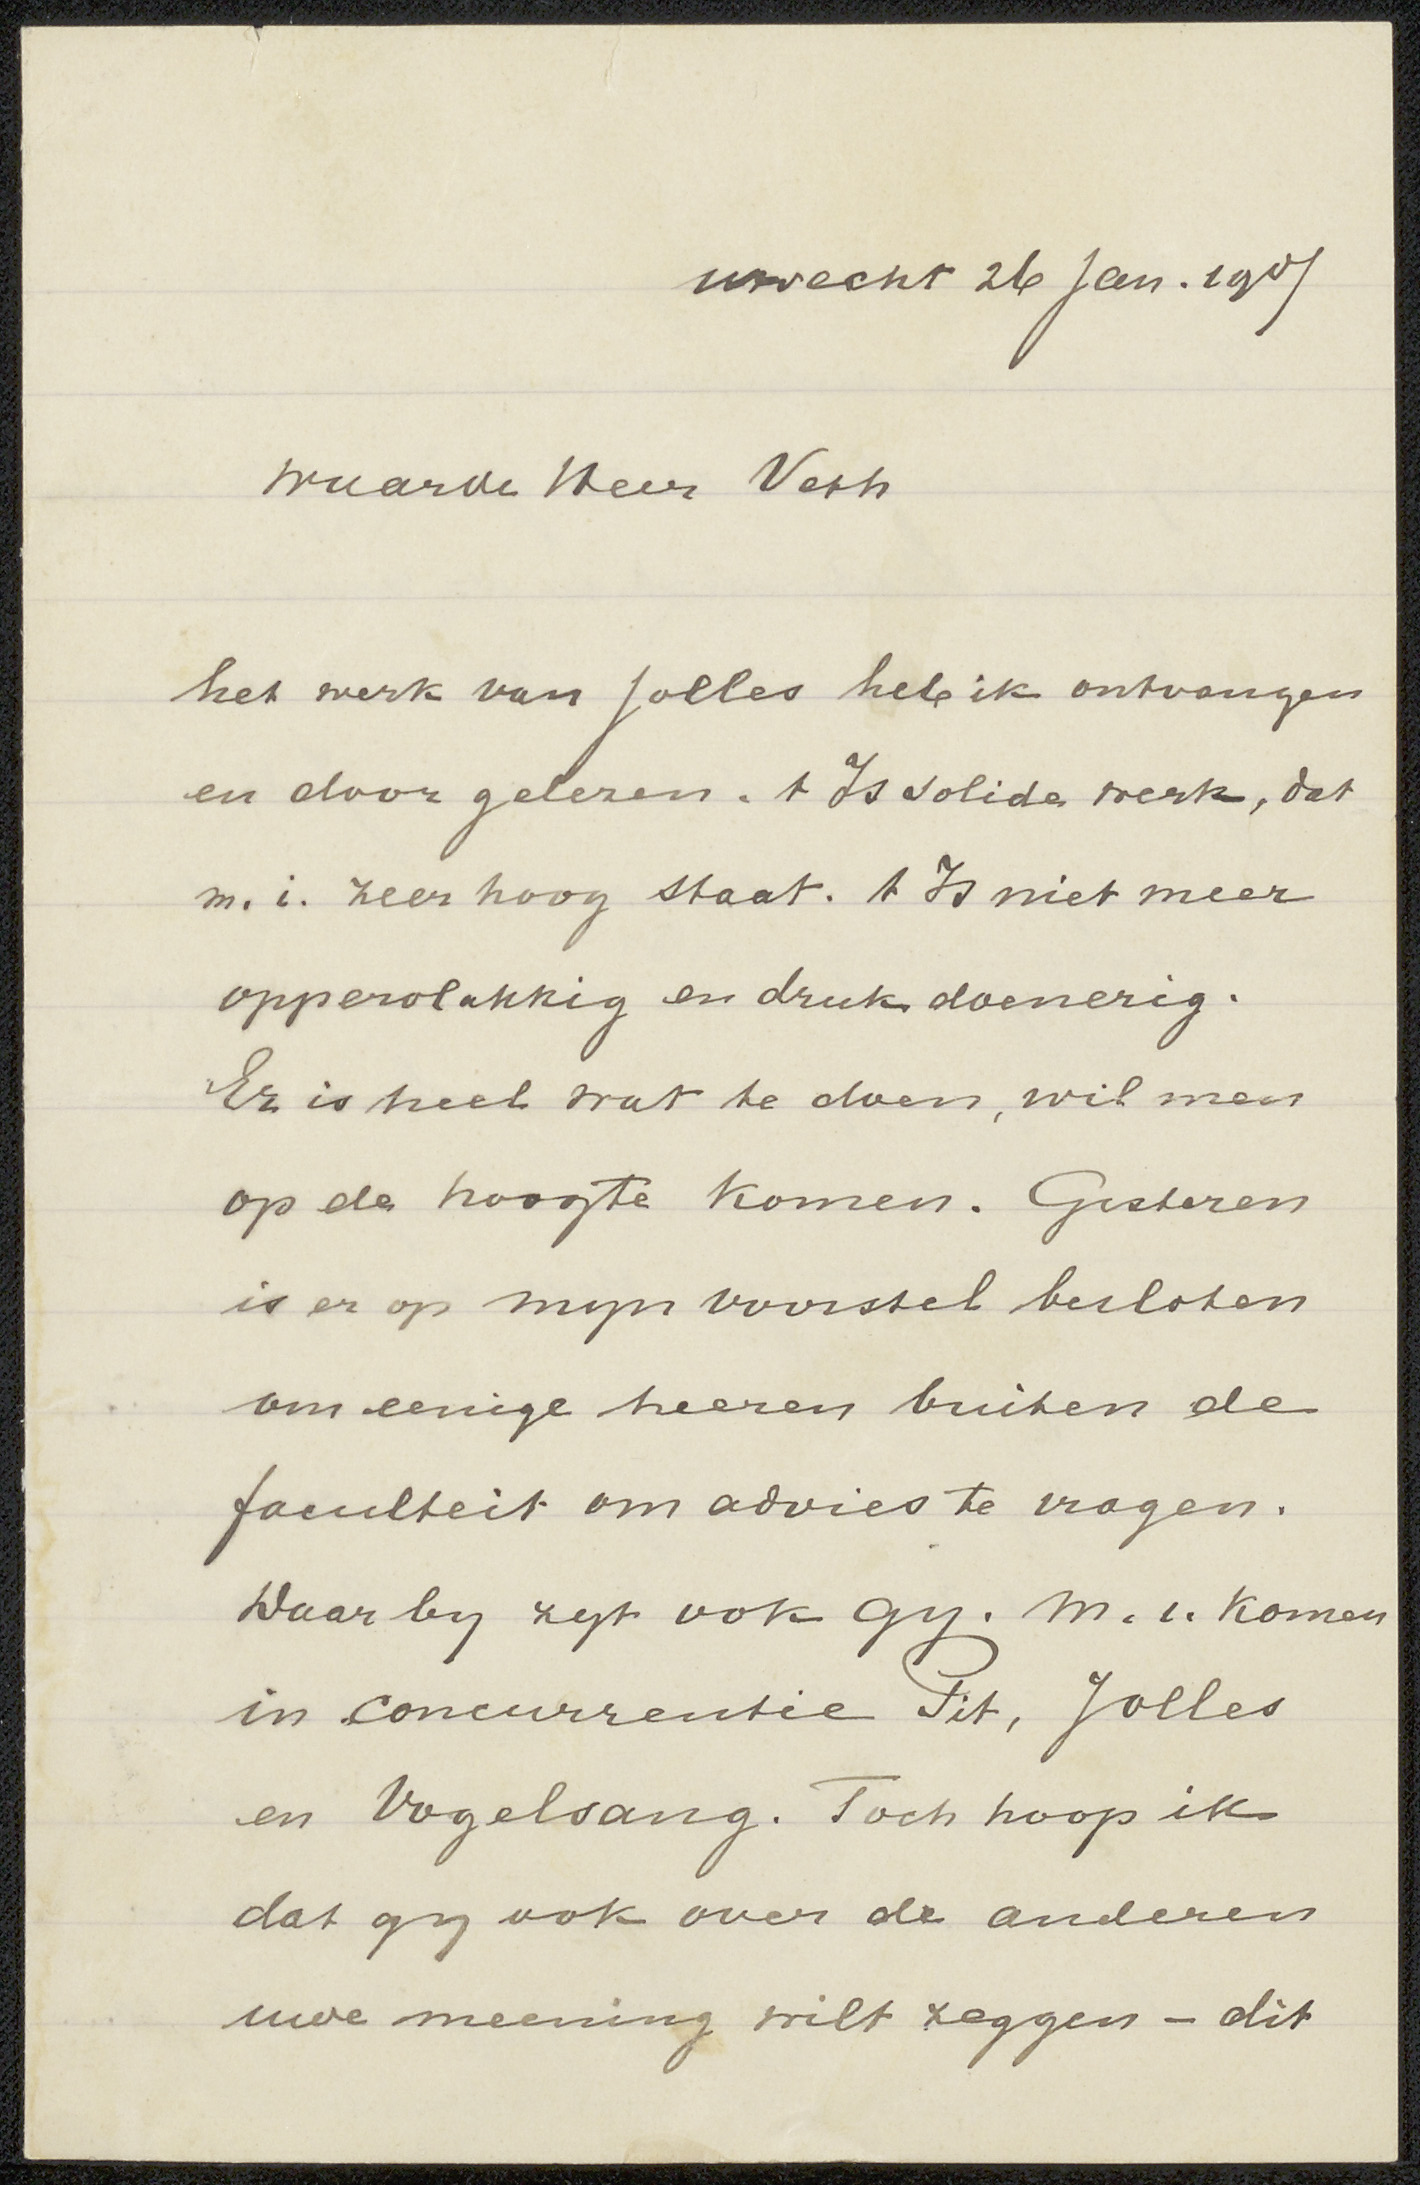 Utrecht 26 Jan. 1907
Waarde Heer Veth
het werk van Jolles heb ik ontvangen
en door gelezen. t Is solide werk, dat
m. i. zeer hoog staat. t Is niet meer
oppervlakkig en druk doenerig.
Er is heel wat te doen, wil men
op de hoogte komen. Gisteren
is er op mijn voorstel besloten
om eenige heeren buiten de
faculteit om advies te vragen.
Daar by zyt ook gy. M. i. komen
in concurrentie Pit, Jolles
en Vogelsang. Toch hoop ik
dat gy ook over de anderen
uwe meening wilt zeggen - dit